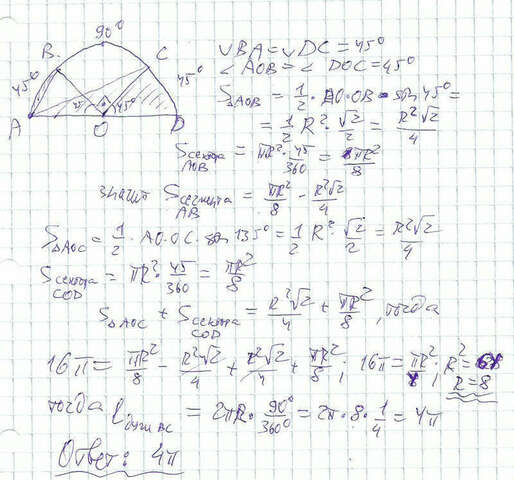 90°
B
C
45°
45°
45°
45°
A
O
D
∪BA = ∪DC = 45°
∠AOB = ∠DOC = 45°
S△AOB = 1/2 · AO·OB · sin 45° =
= 1/2 R² · √2/2 = R²√2/4
Sсектора AOB = πR² · 45/360 = πR²/8
значит Sсегмента AB = πR²/8 - R²√2/4
S△AOC = 1/2 · AO·OC · sin 135° = 1/2 R² · √2/2 = R²√2/4
Sсектора COD = πR² · 45/360 = πR²/8
S△AOC + Sсектора COD = R²√2/4 + πR²/8, тогда
16π = πR²/8 - R²√2/4 + R²√2/4 + πR²/8; 16π = πR²/4; R² = 64
R = 8
тогда lдуги BC = 2πR · 90°/360° = 2π · 8 · 1/4 = 4π
Ответ: 4π